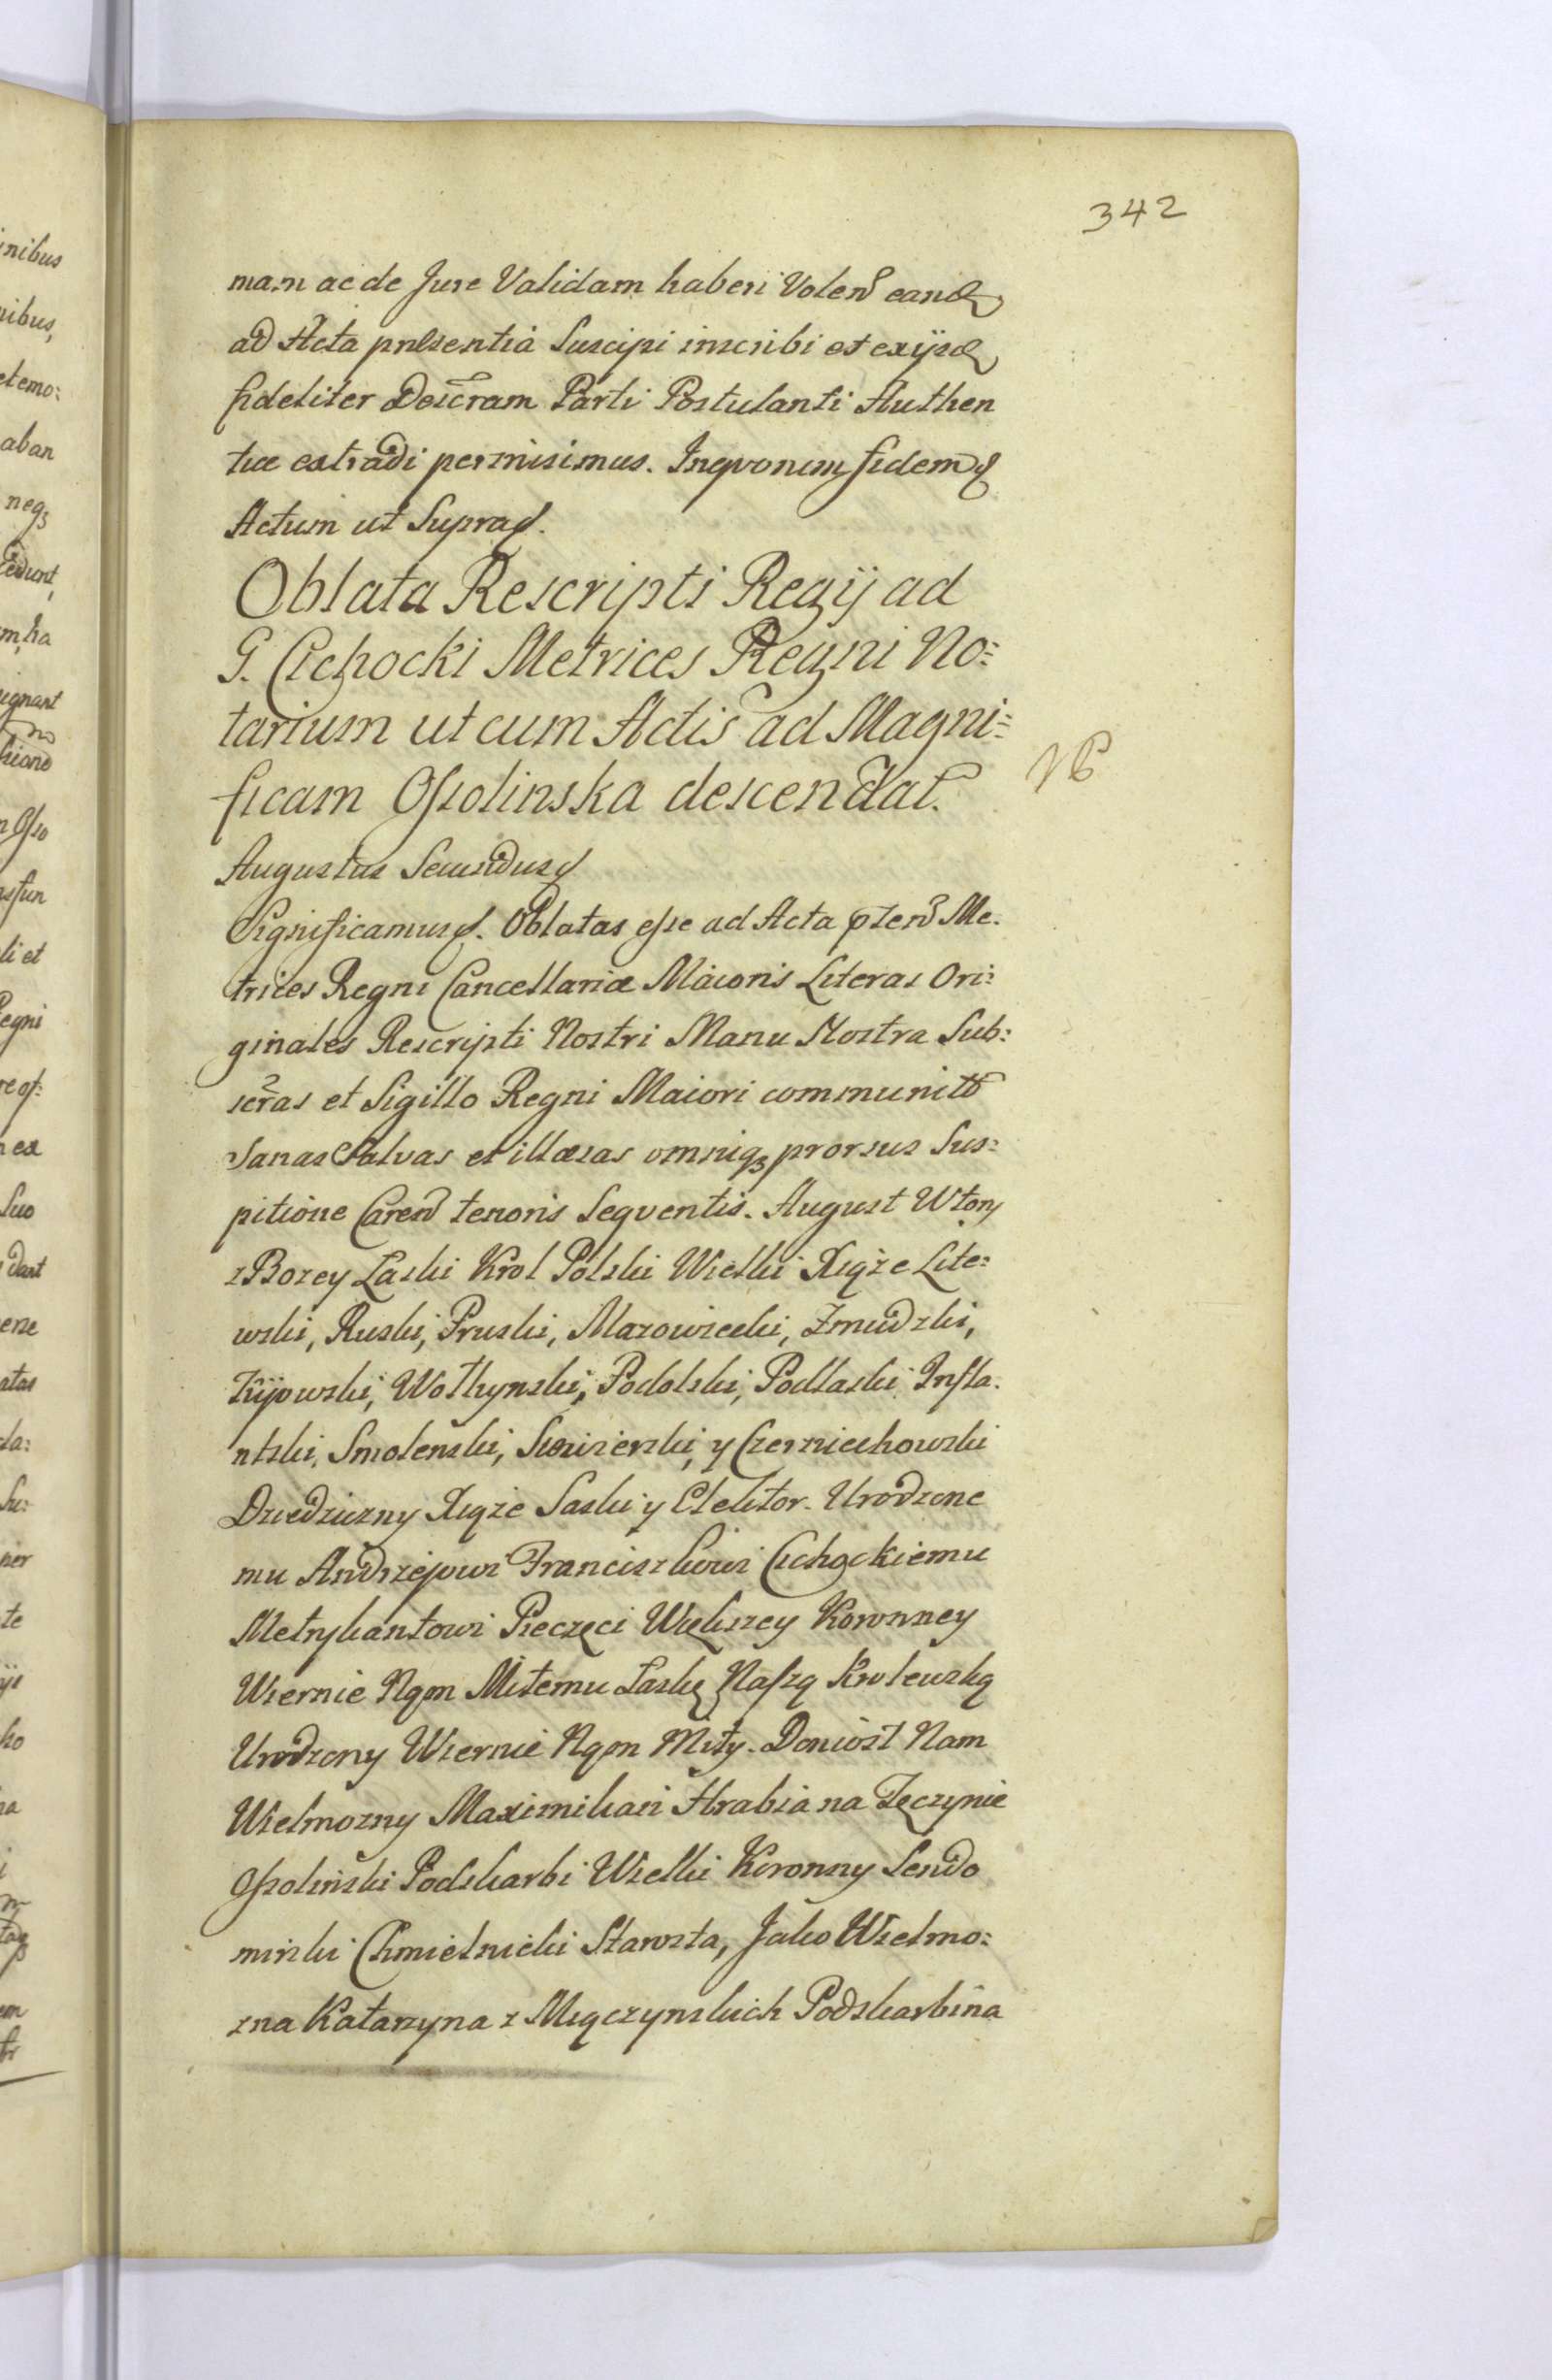 342
mam ac de Jure Validam haberi Volend eand
ad Acta presentia Suscipi inscribi et exijsd
fideliter Descram Parti Postulanti Authen
tice extradi permisimus. Inquorum fidem
Actum ut Supra.
Oblata Rescripti Regij ad
G. Cichocki Metrices Regni No:
tarium ut cum Actis ad Magni:
ficam Ossolinska descendat.
Augustus Secundus
Significamus. Oblatas esse ad Acta pnten Me.
trices Regni Cancellariæ Maioris Literas Ori:
ginales Rescripti Nostri Manu Nostra Sub:
scras et Sigillo Regni Maiori communitt
Sanas Salvas et illæsas omniq3 prorsus Sus:
pitione Caren tenoris Sequentis. August Wtory
z Bozey Łaski Krol Polski Wielki Xiąże Lite:
wski, Ruski, Pruski, Mazowiecki, Zmudzki,
Kijowski, Wołhynski, Podolski, Podlaski Infla.
ntski, Smolenski, Siewierski, y Czerniechowski
Dziedziczny Xiąże Saski y Elektor. Urodzone
mu Andrzejowi Franciszkowi Cichockiemu
Metrykantowi Pieczęci Większey Koronney
Wiernie Nąm Miłemu Łaskę Naszą Krolewską
Urodzony Wiernie Nąm Miły. Doniosł Nam
Wielmozny Maximilian Hrabia na Tęczynie
Ossolinski Podskarbi Wielki Koronny Sendo
mirski Chmielnicki Starosta, Jako Wielmo:
zna Katarzyna z Miączynskich Podskarbina